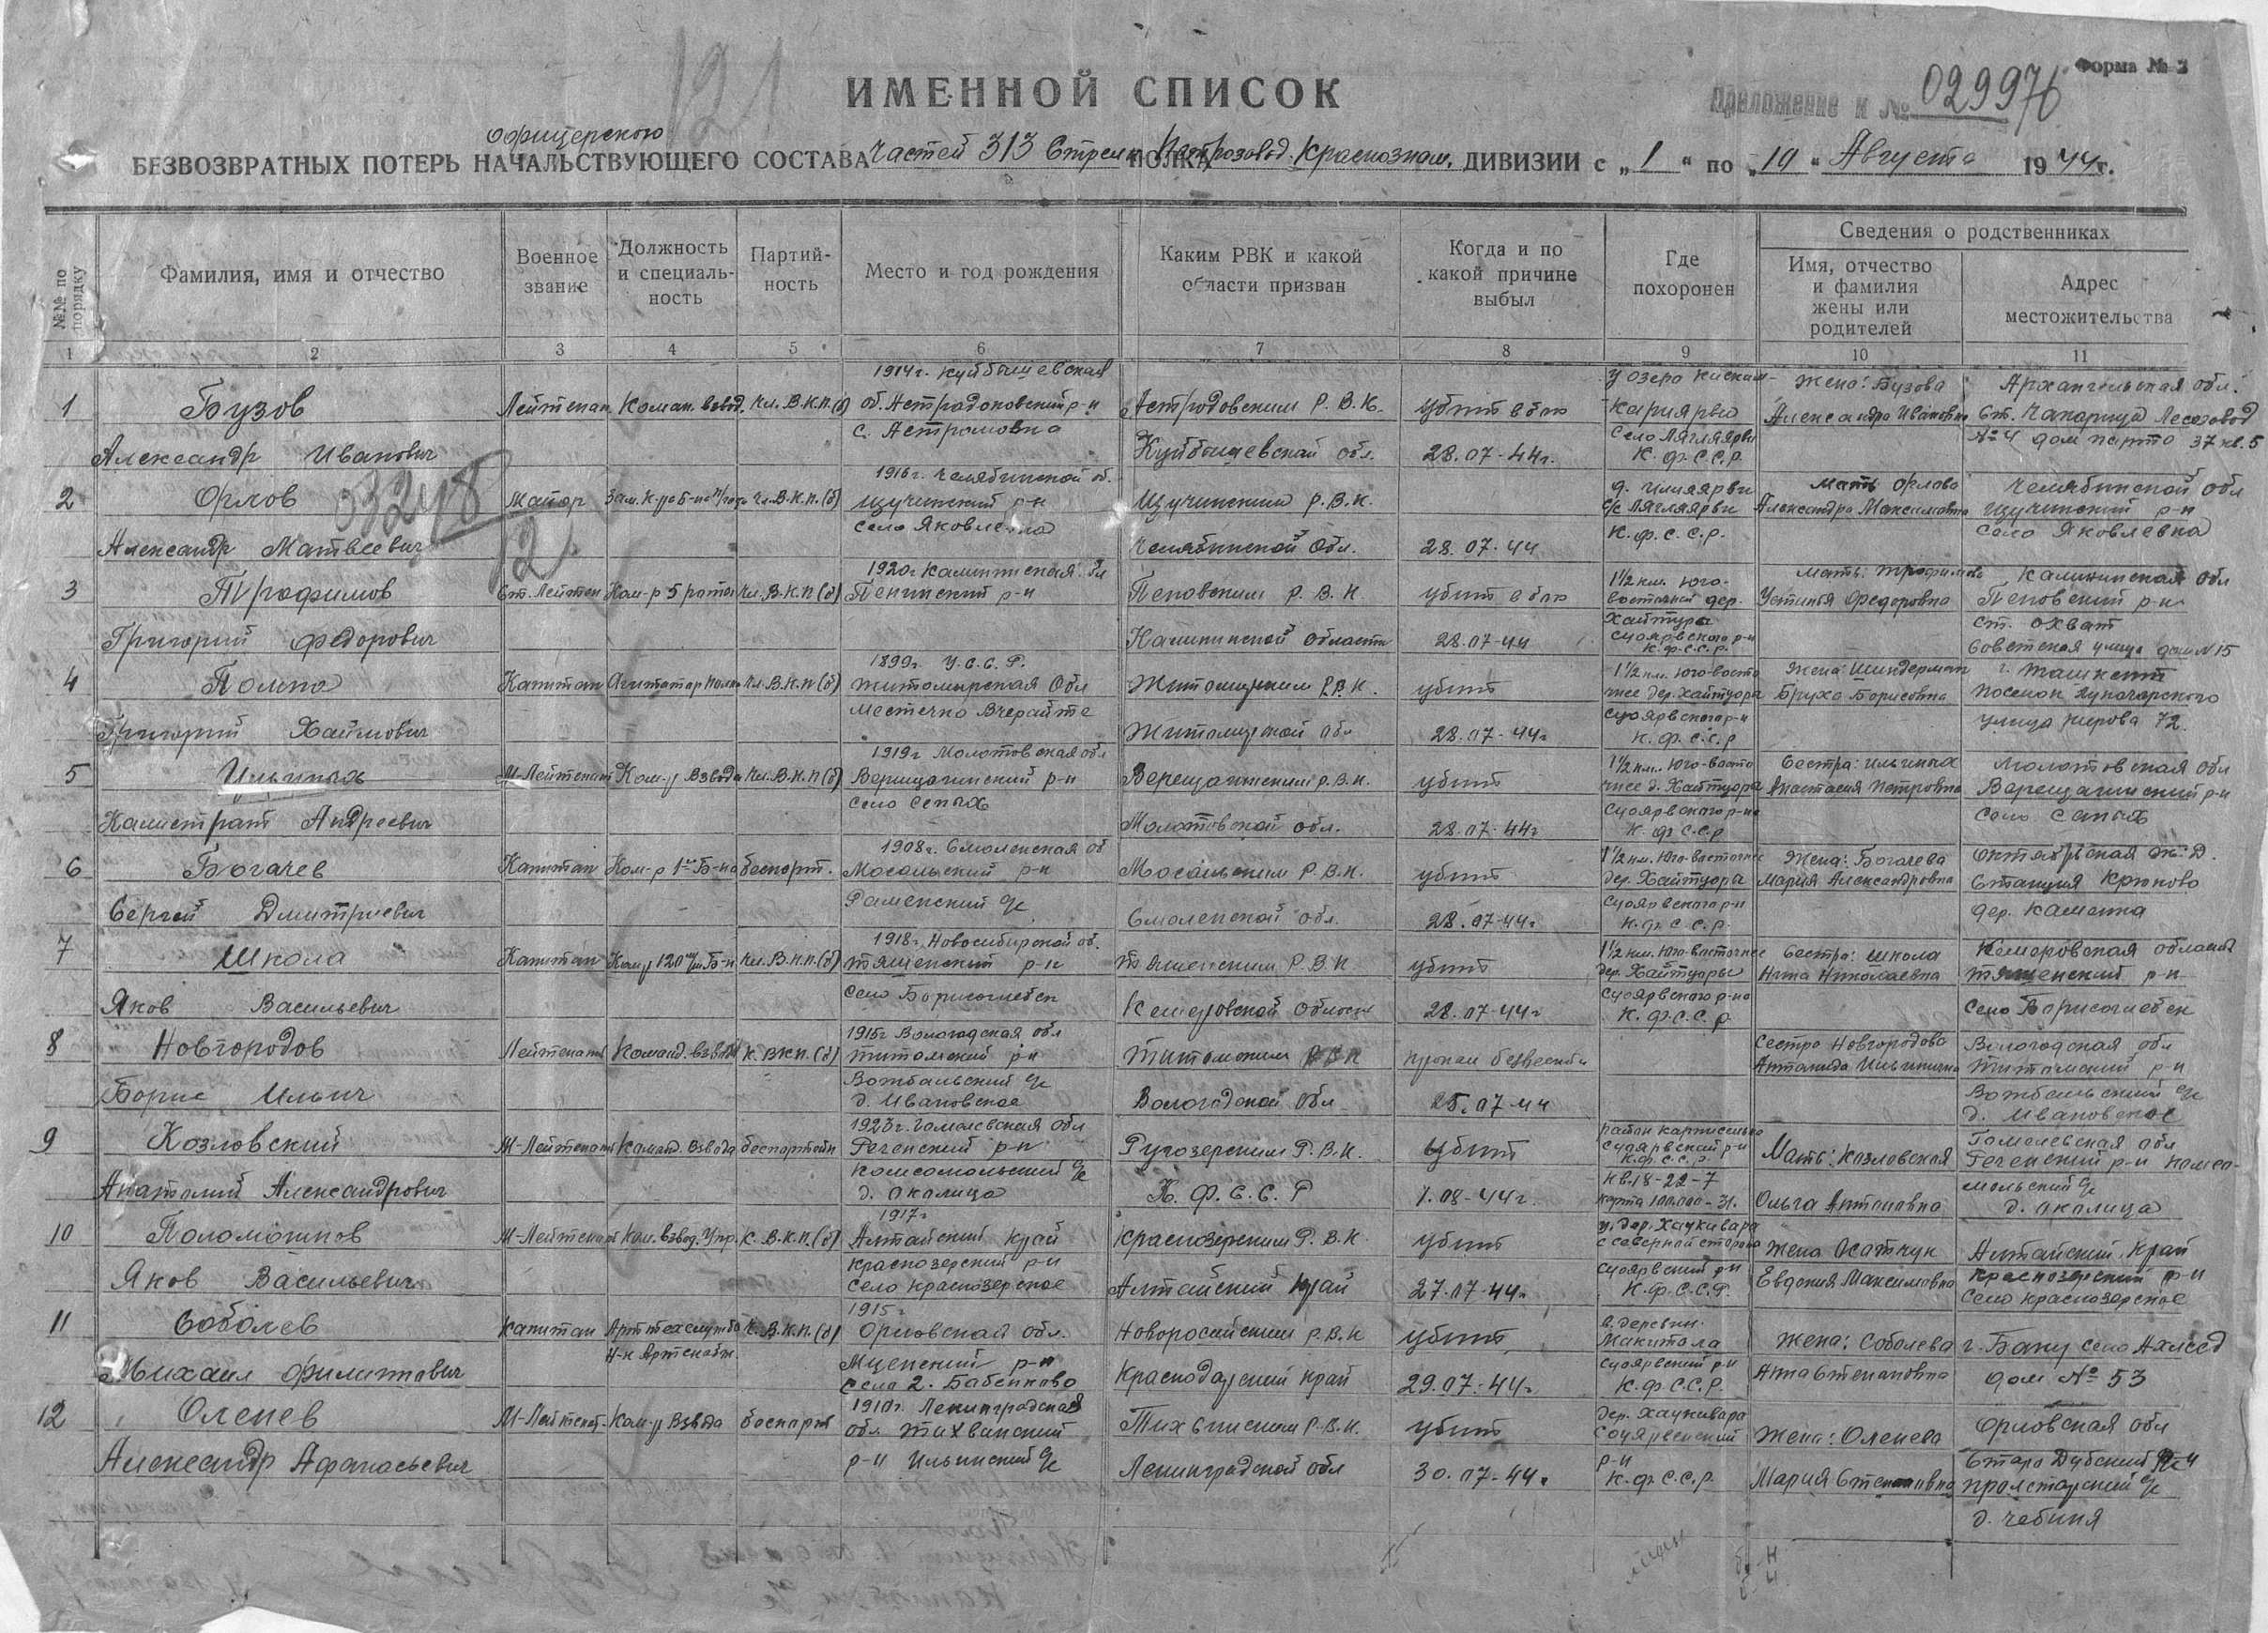 Форма № 3
Приложение к № 029976
121
ИМЕННОЙ СПИСОК
офицерского
БЕЗВОЗВРАТНЫХ ПОТЕРЬ НАЧАЛЬСТВУЮЩЕГО СОСТАВА частей 313 Стрел. ПОЛКА Петрозавод. Краснознам. ДИВИЗИИ с „1“ по „10“ Августа 1944 г.
№№ по порядку
Фамилия, имя и отчество
Военное звание
Должность и специаль-ность
Партий-ность
Место и год рождения
Каким РВК и какой области призван
Когда и по какой причине выбыл
Где похоронен
Сведения о родственниках
Имя, отчество и фамилия жены или родителей
Адрес местожительства
1 2 3 4 5 6 7 8 9 10 11
1 Бузов Александр Иванович
Лейтенан. Коман. взвод. чл. В.К.П.(б)
1914 г. Куйбышевская об.
Р.В.К. Куйбышевской обл.
убит в бою 28.07-44г.
у озера
К.ф.С.С.Р.
Жена: Бузова Александра Ивановна
Архангельская обл.
дом 37 кв. 5
2 Орлов Александр Матвеевич
03248
12
Майор чл. В.К.П.(б)
1916 г. Челябинской об. Щучинский р-н село Яковлевка
Щучинским Р.В.К. Челябинской Обл.
28.07-44
К.ф.С.С.Р.
Мать Орлова Александра Максимовна
Челябинской обл Щучинский р-н село Яковлевка
3 Трофимов Григорий Федорович
Ст. Лейтен Ком-р 5 роты чл. В.К.П(б)
1920г Калининская обл
Пеновским Р.В.К. Калининской области
убит в бою 28.07-44
1½ км. юго-восточней дер. Хайтура Суоярвского р-н К.ф.С.С.Р.
Мать: Трофимова Устинья Федоровна
Калининская обл Пеновский р-н ст. Охват Советская улица дом N 15
4 Полна Григорий Хаймович
Капитан Агитатор полка чл. В.К.П(б)
1899г. У.С.С.Р. Житомирская Обл Местечко Вчерайте
Житомирским Р.В.К. Житомирской обл
убит 28.07-44г
1½ км. юго-восто чнее дер. Хайтура Суоярвского р-н К.ф.С.С.Р
Жена: Шиндерман Бруха Борисовна
г. Ташкент поселок Луначарского улица Кирова 72
5 Ильиных Калистрат Андреевич
М-Лейтенант Ком-р Взвода чл. В.К.П(б)
1919г Молотовская обл Верещагинский р-н село Сепых
Верещагинским Р.В.К. Молотовской обл.
убит 28.07-44г
1½ км. Юго-восто чнее д. Хайтура Суоярвского р-на К.ф.С.С.Р
Сестра: Ильиных Анастасия Петровна
Молотовская обл Верещагинский р-н село Сепых
6 Богачев Сергей Дмитриевич
Капитан Ком-р 1го Б-на беспарт.
1908г. Смоленская об Мосальский р-н Раменский с/с
Мосальским Р.В.К. Смоленской обл.
убит 28.07-44г.
1½ км. Юго-восточнее дер. Хайтуры Суоярвского р-н К.ф.С.С.Р.
Жена: Богачева Мария Александровна
Октябрьская ж.д. Станция Крюково дер. Каменка
7 Школа Яков Васильевич
Капитан Ком-р 120 м/м Б-и чл. В.К.П.(б)
1918г. Новосибирской об. Тяшенский р-н село Борисоглебск
Тяшенским Р.В.К. Кемеровской Области
убит 28.07-44г
1½ км. Юго-восточнее дер. Хайтуры Суоярвского р-на К.ф.С.С.Р
Сестра: Школа Нина Николаевна
Кемеровская область Тяшенский р-н село Борисоглебск
8 Новгородов Борис Ильич
Лейтенант Команд. взвода К. ВКП.(б)
1915г Вологодская обл Тотемский р-н Вожбальский с/с д. Ивановское
Тотемским РВК Вологодской Обл
пропал безвести 25.07-44
Сестра Новгородова Ильинична
Вологодская обл Тотемский р-н Вожбальский с/с д. Ивановское
9 Козловский Анатолий Александрович
М-Лейтенант Команд. Взвода беспартийн
1923г. Гомельевская обл Реченский р-н Комсомольский с/с д. Околица
Ругозерским Р.В.К. К.Ф.С.С.Р
убит 1.08-44г.
Суоярвский р-н К.ф.С.С.Р. кв. 18-22-7 карта 100.000-31.
Мать: Козловская Ольга Антоновна
Гомелевская обл Реченский р-н Комсо-мольский с/с д. Околица
10 Поломошнов Яков Васильевич
М-Лейтенант Ком. взвод. Упр. К. В.К.П.(б)
1917г Алтайский край Краснозерский р-н село Краснозерское
Краснозерским Р.В.К Алтайский Край
убит 27.07-44г.
дер. Хаукивара с северной стороны Суоярвский р-н К.ф.С.С.Р.
Жена Осатчук Евдокия Максимовна
Алтайский Край Краснозерский р-н село Краснозерское
11 Соболев Михаил Филиппович
Капитан Арттехслужба Н-к Артснабж. К. В.К.П.(б)
1915г Орловская обл. Мценский р-н село 2. Бабенково
Новоросийским Р.В.К Краснодарский край
убит 29.07-44г.
в. деревни. Суоярвский р-н К.ф.С.С.Р.
Жена: Соболева Анна Степановна
г. Баку село Ахмед дом № 53
12 Оленев Александр Афанасьевич
М-Лейтенат. Ком-р Взвода беспарт
1910г. Ленинградская обл. Тихвинский р-н Ильинский с/с
Тихвинским Р.В.К. Ленинградской обл
убит 30.07-44г.
дер. Хаукивара р-н К.ф.С.С.Р.
Жена: Оленева Мария Степановна
Орловская обл Пролетарский с/с д. Чебиня